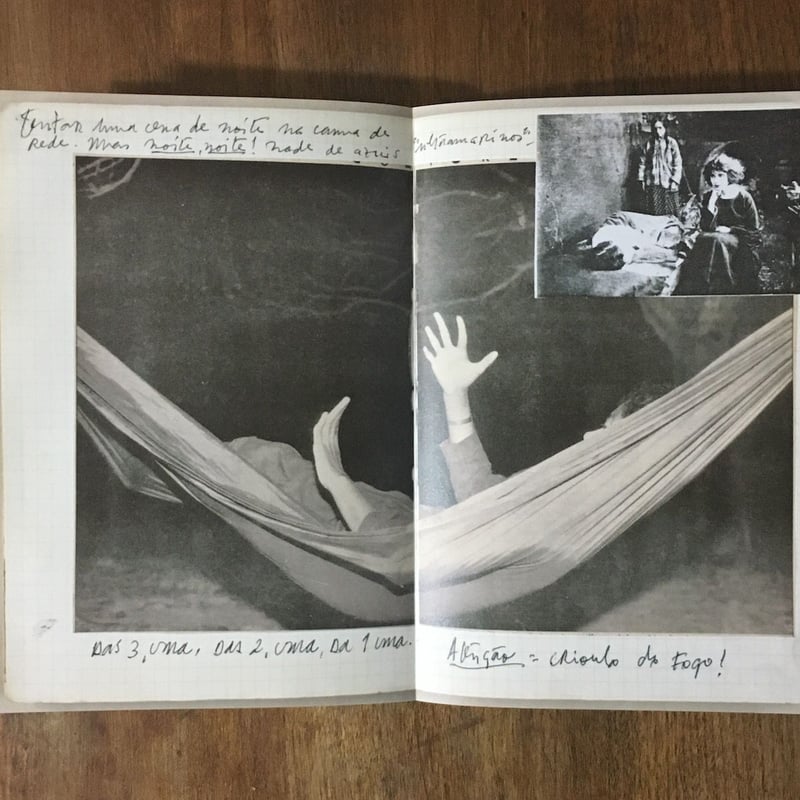 Tentar uma cena de noite na cama de
rede. Mas noite, noite! nada de azuis "ultramarinos".
Das 3, uma. Das 2, uma, Da 1 uma.
Atenção = crioulo do Fogo!